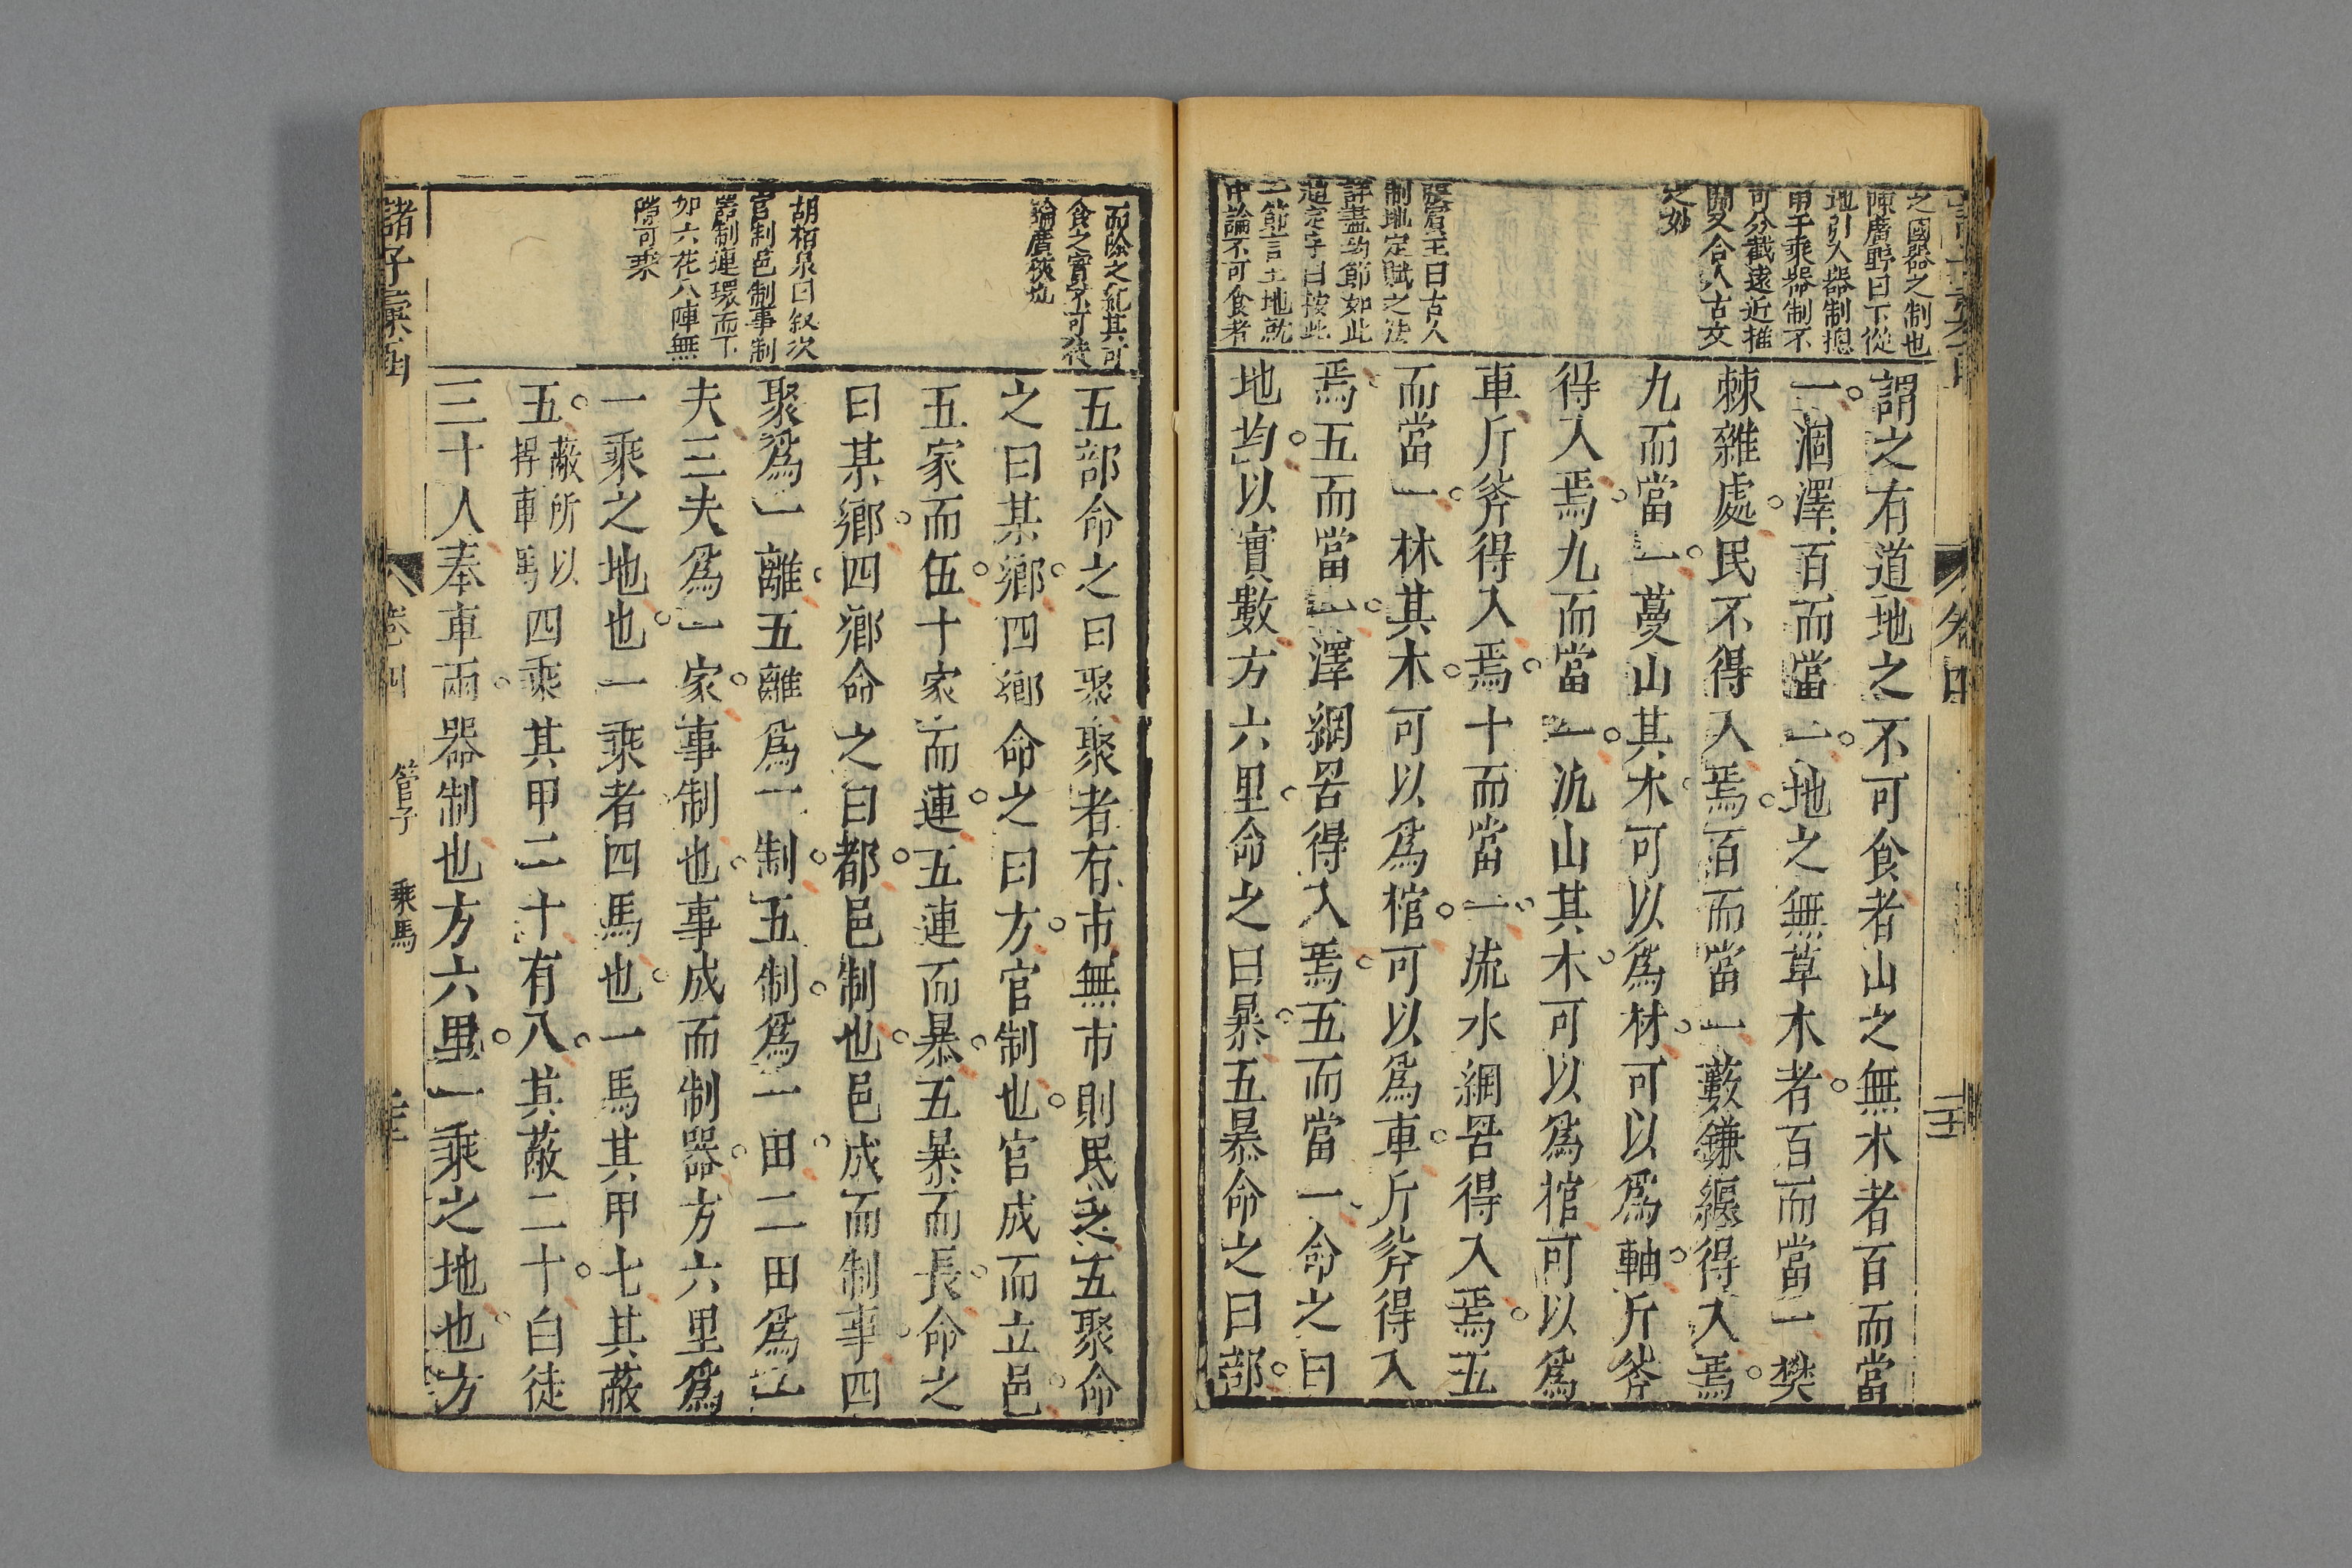 之國器之制也
陳廣野曰下從
地引入器制揔
甲于乘器制不
可分截遠近推
開又合入古文
之妙
張賓王曰古人
制地定賦之法
詳盡均節如此
趙定宇曰按此
一節言土地就
中論不可食者
謂之有道地之不可食者山之無木者百而當
一涸澤百而當一地之無草木者百而當一樊
棘雜處民不得入焉百而當一藪鎌纒得入焉
九而當一蔓山其木可以爲材可以爲軸斤斧
得入焉九而當一汎山其木可以爲棺可以爲
車斤斧得入焉十而當一流水網罟得入焉五
而當一林其木可以爲棺可以爲車斤斧得入
焉五而當一澤網罟得入焉五而當一命之曰
地均以實數方六里命之曰暴五暴命之曰部
卷四
而除之紀其可
食之實不可徒
論廣狹也
胡栢泉曰叙次
官制邑制事制
器制連環而下
如六花八陣無
隙可乘
五部命之曰聚聚者有市無市則民乏五聚命
之曰某鄉四鄉命之曰方官制也官成而立邑
五家而伍十家而連五連而暴五暴而長命之
曰某鄉四鄉命之曰都邑制也邑成而制事四
聚爲一離五離爲一制五制爲一田二田爲一
夫三夫爲一家事制也事成而制器方六里爲
一乘之地也一乘者四馬也一馬其甲七其蔽
五蔽所以捍車馬四乘其甲二十有八其蔽二十白徒
三十人奉車兩器制也方六里一乘之地也方
諸子彙函
卷四
管子
乘馬